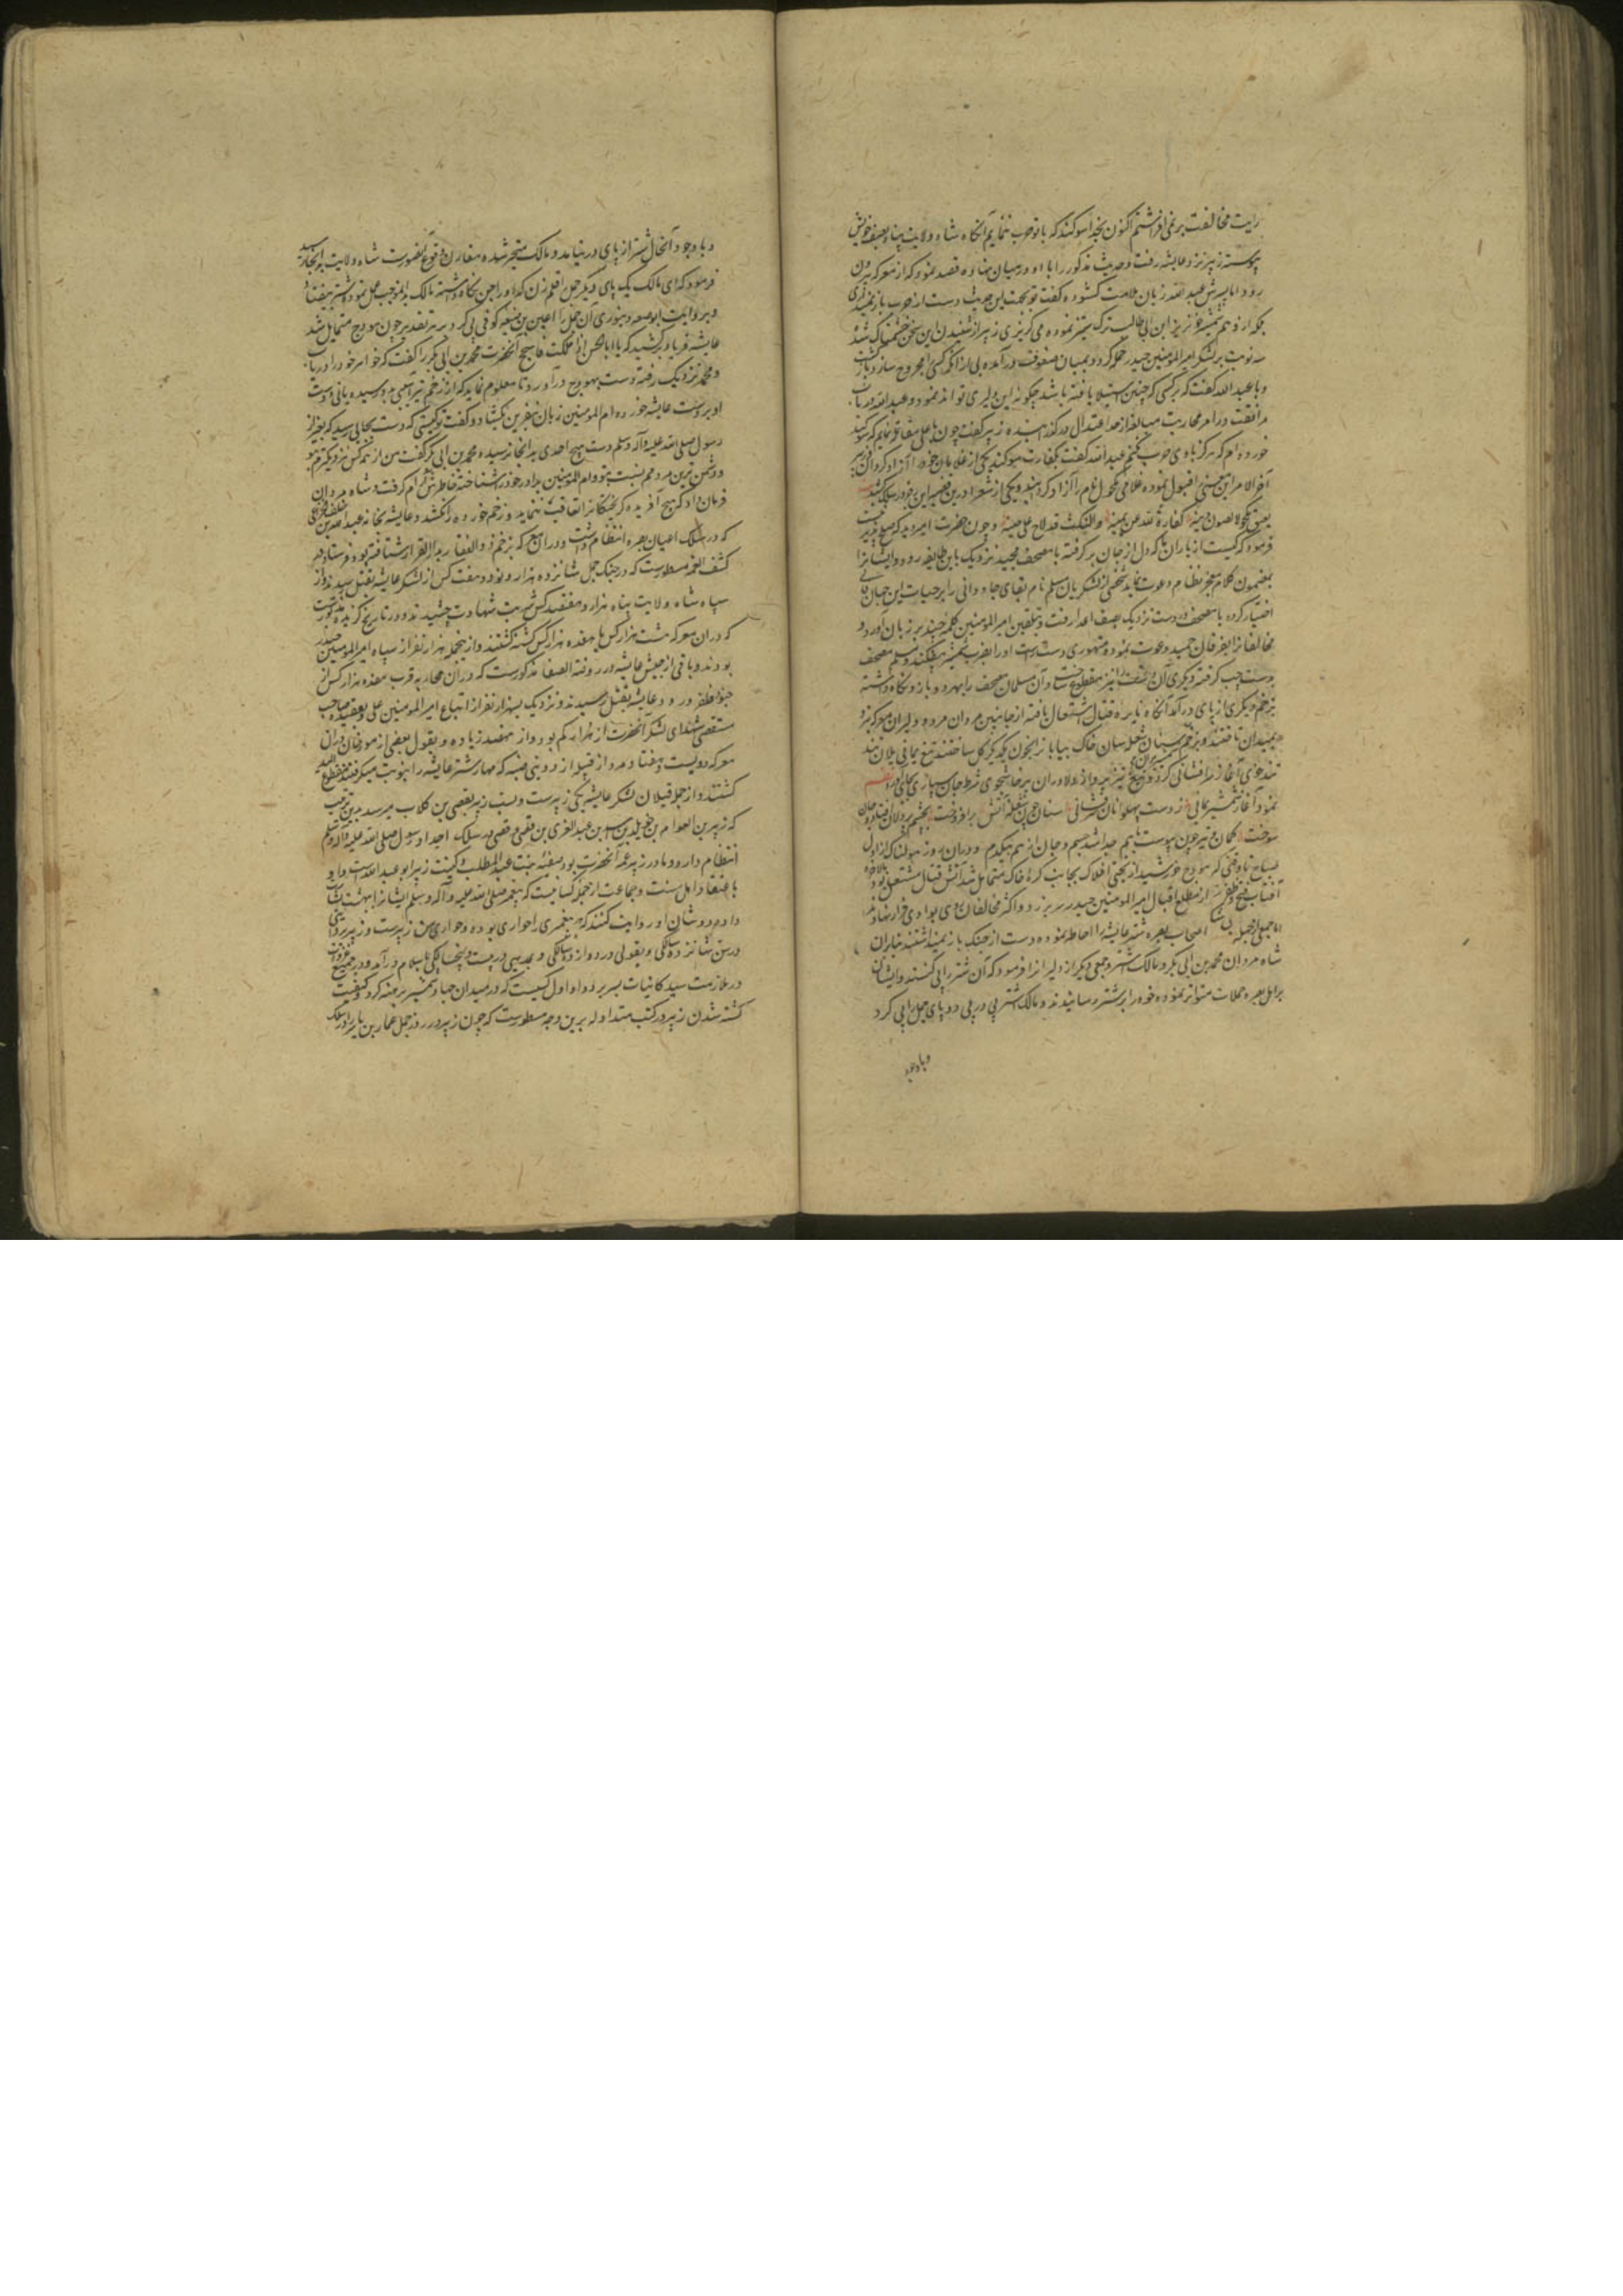 رایت مخالفت بر نمی افراشتم اکنون بخدا سوکند که با تو حرب ننمایم آنکاه شاه ولایت پناه بصف خویش
پیوسته زبیر نزد عایشه رفت و حدیث مذکور را با او در میان نهاده قصد نمود که از معرکه بیرون
رود اما پسرش عبد الله زبان ملامت کشوده کفت تو بجهت این حدیث دست از حرب باز نمیداری
بلکه از وهم شمشیر ابن ابی طالب ترک ستیز نموده می کریزی زبیر از شنیدن این سخن خشمناک شده
سه نوبت بر لشکر امیر المومنین حیدر حمله کرد و بمیان صفوف درآمده بی از آنکه کسی را مجروح سازد بازکشت
و با عبد الله کفت که کسی که چنین استیلا یافته باشد چکونه این دلیری تواند نمود و عبد الله در باب
مرافقت در امر محاربت مبالغه از حد اعتدال در کذرانیده زبیر کفت چون با علی مقاتله نمایم که سوکند
خورده ام که هرکز با وی حرب نکنم عبد الله کفت کفارت سوکند یکی از غلامان خود را آزاد کردان زبیر
آخر الامر این معنی را قبول نموده غلامی مکحول نام را آزاد کرد و یکی از شعرا درین قضیه این در سلک کشید
یعتق مکحولا لصون دینه کفارة لله عن یمینه والنکث قد لاح علی جبینه و چون حضرت امیر دید که صلح پذیر نیست
فرمود که کیست از یاران ما که دل از جان برکرفته با مصحف مجید نزدیک باین طایفه رود و ایشان را
بمضمون کلام معجز نظام دعوت نماید شخصی از لشکریان مسلم نام بقای جاودانی را بر حیات این جهان فانی
اختیار کرده با مصحف در دست نزدیک بصف اعدا رفت و بتلقین امیر المومنین کلمه چند بر زبان آورد و
مخالفانرا بفرقان حمید دعوت نموده متهوری دست راست او را بضرب شمشیر بیفکند و مسلم مصحف
بدست چپ کرفته دیکری آن دست را نیز مقطوع ساخت و آن مسلمان مصحف را بهر دو بازو نکاه داشته
بزخم دیکری از پای درآمد آنکاه نایره قتال اشتعال یافته از جانبین مردان مرد و دلیران معرکه نبرد
بمیدان تاختند و بزخم سنان شعله سان خاک بیابان را بخون یکدیکر کل ساختند تیغ یمانی یلان نبرد
تندخوی آغاز سرافشانی کرد و خدنک تیز پرواز دلاوران پرخاشجوی شرط جان سپاری بجای آورد نظم
نمود آغاز شمشیر یمانی ز دست پهلوانان سرفشانی سنان چون شعله آتش برافروخت بچشم پر دلان افتاد و جان
سوخت کمان و تیر چون پیوست باهم جدا شد جسم و جان از هم بیکدم و دران روز هولناک از اول
صباح تا وقتی که هودج خورشید از بختی افلاک بجانب کره خاک متمایل شد آتش قتال مشتعل بود و بالاخره
آفتاب فتح و ظفر از مطلع اقبال امیر المومنین حیدر سر بر زد و اکثر مخالفان روی بوادی فرار نهادند
اما جمعی از جمله اصحاب بصره شتر عایشه را احاطه نموده دست از جنک باز نمیداشتند بنابران
شاه مردان محمد بن ابی بکر و مالک اشتر و جمعی دیکر از دلیرانرا فرمود که آن شتر را پی کنند و ایشان
بر اهل بصره حملات متواتر نموده خود را بر شتر رسانیدند و مالک اشتر پی در پی دو پای جمل را پی کرد
و با وجود
و با وجود آنحال شتر از پای در نیامد و مالک متحیر شده مقارن وقوع آنصورت شاه ولایت بانجا رسید
فرمود که ای مالک یک پای دیکر جمل را قلم زن که او را جن نکاه داشته مالک بدانموجب عمل نموده شتر بیفتاد
و بروایت ابو حنیفه دینوری آن جمل را اعین بن ضبیعه کوفی پی کرد بر هر تقدیر چون هودج متمایل شد
عایشه فریاد برکشید که یا ابا الحسن اذا ملکت فاسجح آنحضرت محمد بن ابی بکر را کفت که خواهر خود را دریاب
و محمد نزدیک رفته دست بهودج درآورد تا معلوم نماید که از زخم تیر آسیبی بدو رسیده یا نی و دست
او بر دست عایشه خورده ام المومنین زبان بنفرین بکشاد و کفت تو کیستی که دست بجایی رسید که بغیر از
رسول صلی الله علیه و آله و سلم دست هیچ احدی بدانجا نرسیده محمد بن ابی بکر کفت من از همه کس نزدیکترم بتو
و دشمن ترین مردمم نسبت بتو و ام المومنین برادر خود را شناخته خاطرش آرام کرفت و شاه مردان
فرمان داد که هیچ آفریده کریختکانرا تعاقب ننماید و زخم خورده را نکشد و عایشه بخانه عبد الله بن خلف خزاعی
که در سلک اعیان بصره انتظام داشت و دران معرکه بزخم ذو الفقار بدار القرار شتافته بود فرستاد و در
کشف الغمه مسطورست که در جنک جمل شانزده هزار و نود و هفت کس از لشکر عایشه بقتل رسیدند و از
سپاه شاه ولایت پناه هزار و هفتصد کس شربت شهادت چشیدند و در تاریخ کزیده مذکورست
که دران معرکه هشت هزار کس یا هفده هزار کس کشته کشتند و ازینجمله هزار نفر از سپاه امیر المومنین حیدر
بودند و باقی از جیش عایشه و در روضة الصفا مذکورست که دران محاربه قرب هفده هزار کس از
جنود ظفر ورود عایشه بقتل رسیدند و نزدیک بهزار نفر از اتباع امیر المومنین علی و بعقیده صاحب
مستقصی شهدای لشکر آنحضرت از هزار کم بود و از هفتصد زیاده و بقول بعضی از مورخان دران
معرکه دویست و هفتاد مرد از قبیله ازد و بنی ضبه که مهار شتر عایشه را بنوبت میکرفتند مقطوع الید
کشتند و از جمله قتیلان لشکر عایشه یکی زبیرست و نسب زبیر بقصی بن کلاب میرسد بدین ترتیب
که زبیر بن العوام بن خویلد بن اسد بن عبد العزی بن قصی و قصی در سلک اجداد رسول صلی الله علیه و آله و سلم
انتظام دارد و مادر زبیر عمه آنحضرت بود صفیه بنت عبد المطلب و کنیت زبیر ابو عبد الله است و او
باعتقاد اهل سنت و جماعت از جمله کسانیست که پیغمبر صلی الله علیه و آله و سلم ایشانرا ببهشت بشارت
داده و در شان او روایت کنند که هر پیغمبری را حواری بوده و حواری من زبیرست و زبیر بروایتی
در سن شانزده سالکی و بقولی در دوازده سالکی و بمذهبی در بیست و پنج سالکی باسلام درآمد و در جمیع غزوات
در ملازمت سید کاینات بسر برد و او اول کسیست که در میدان جهاد شمشیر برهنه کرد و کیفیت
کشته شدن زبیر در کتب متداوله برین وجه مسطورست که چون زبیر در روز جمل عمار بن یاسر را در سلک